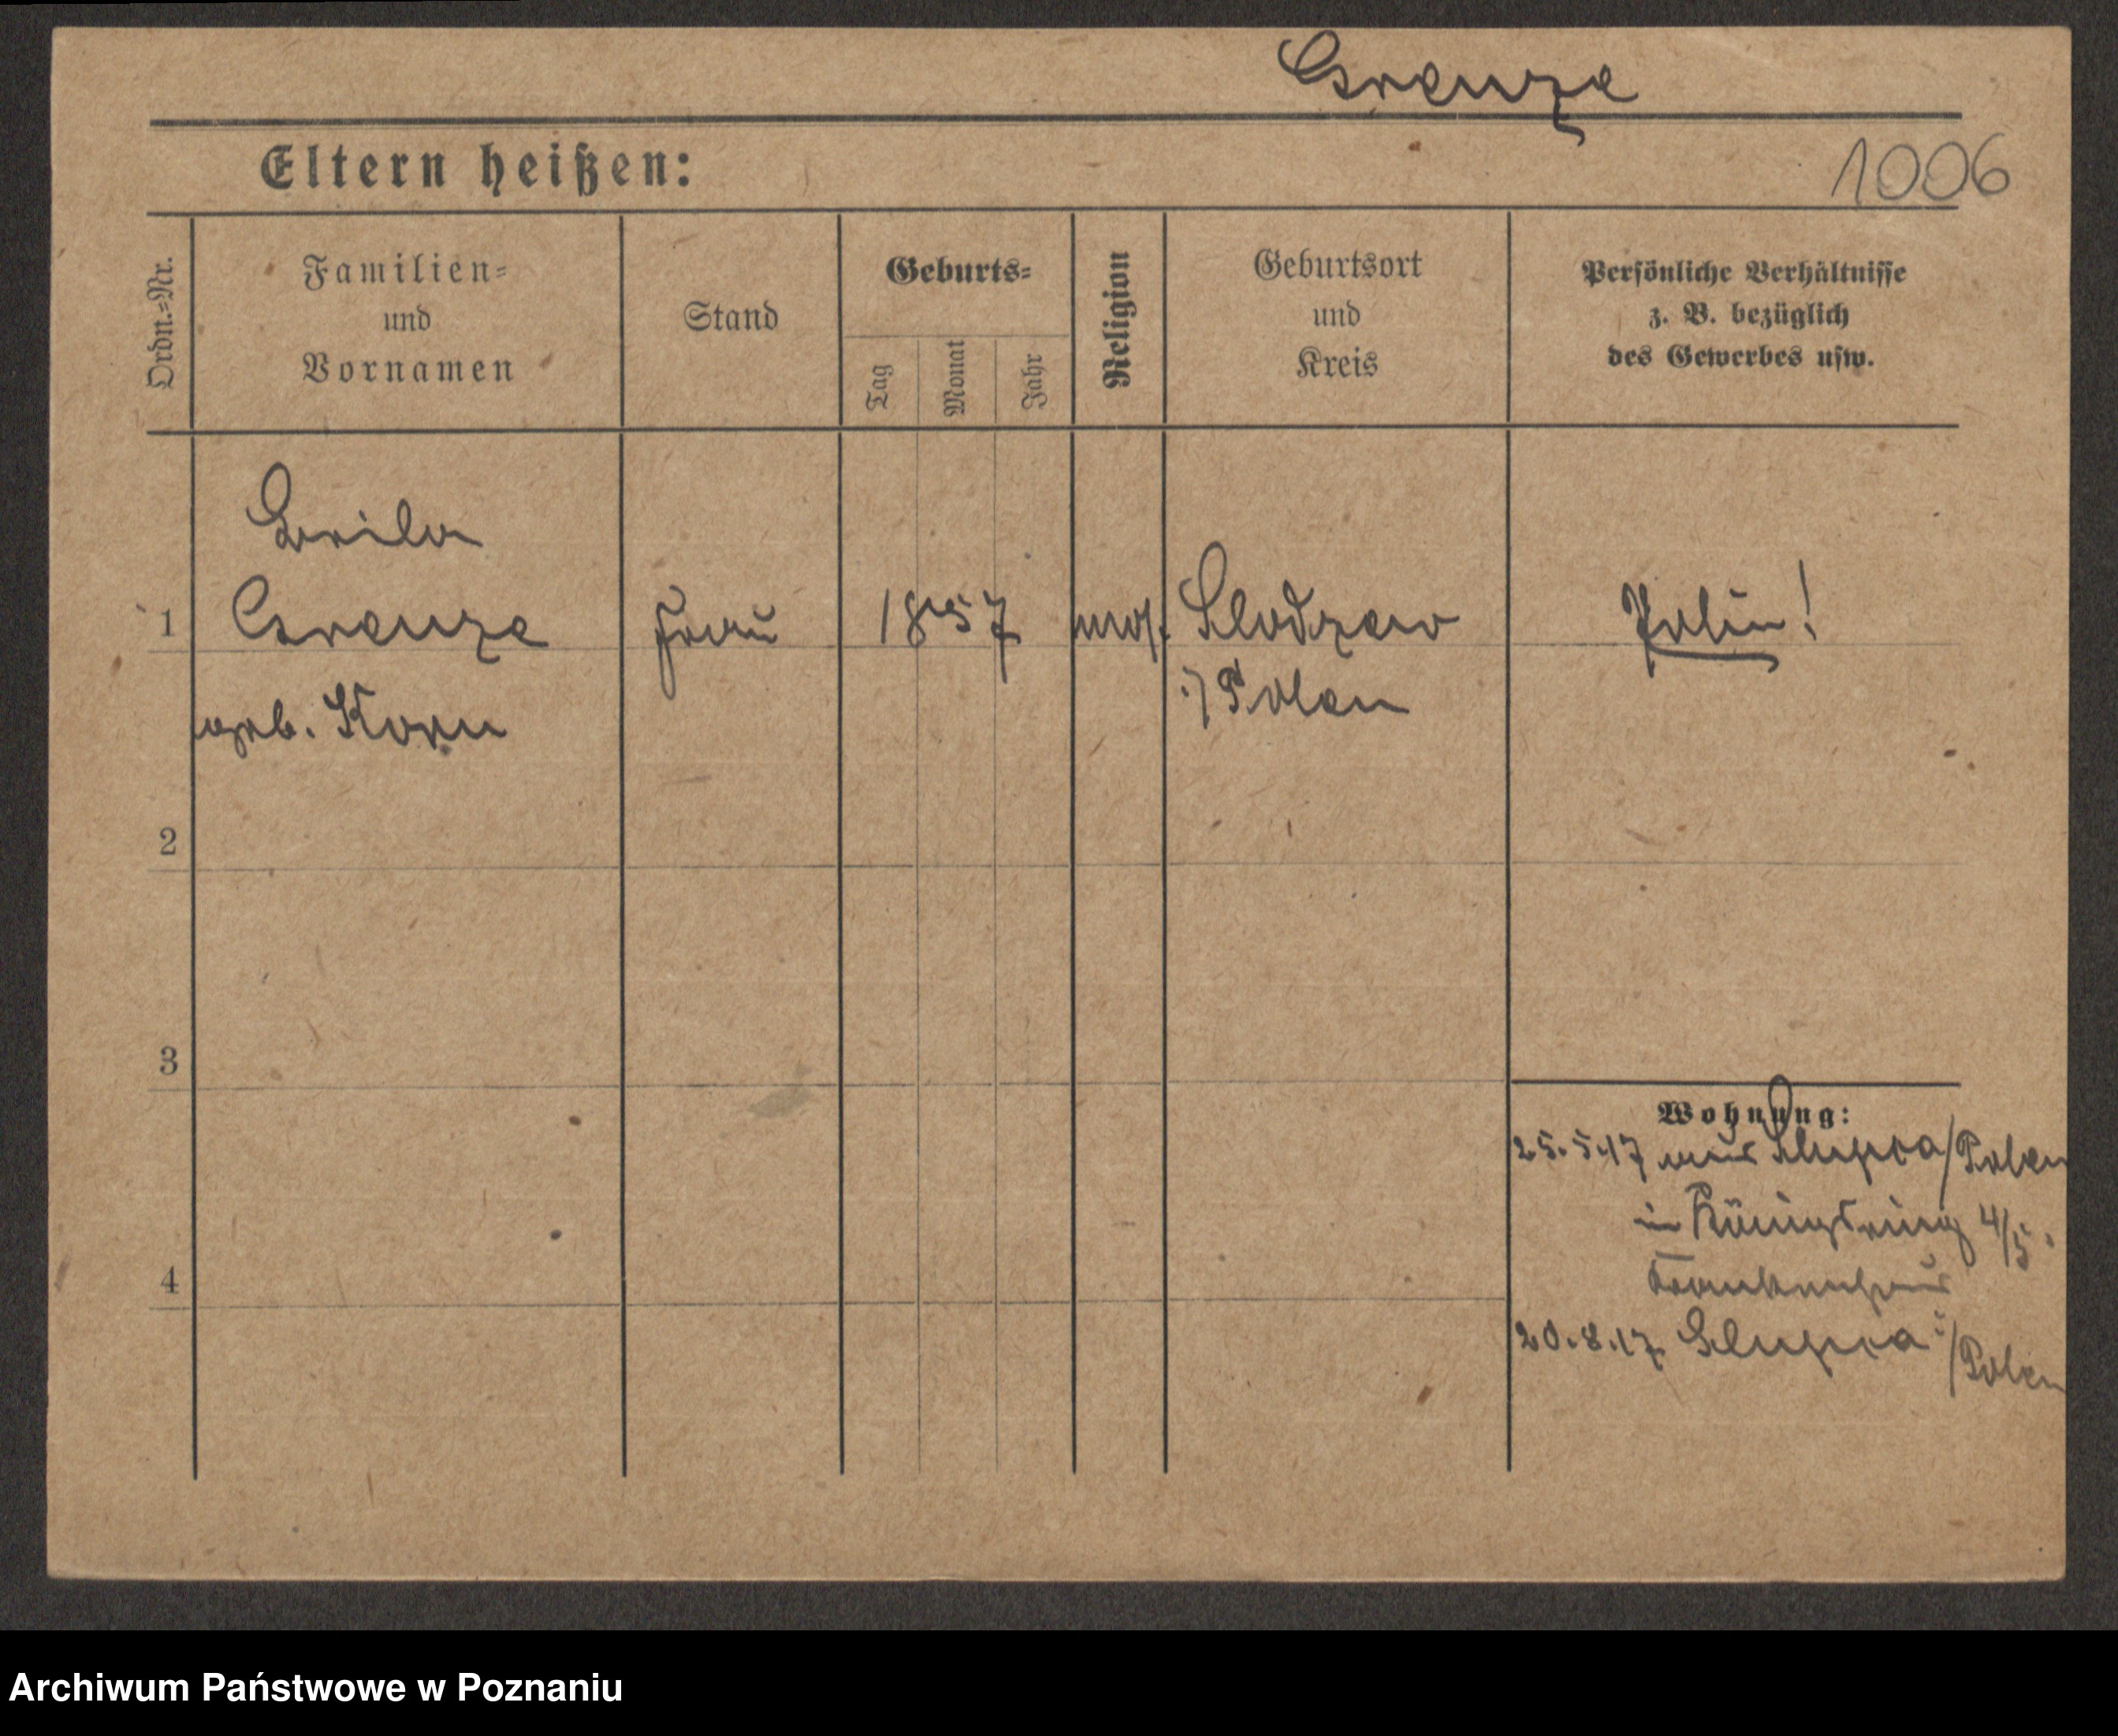 Grenze
Eltern heißen:
1006
Ordn.-Nr.
Familien-
und
Vornamen
Stand
Geburts-
Tag
Monat
Jahr
Religion
Geburtsort
und
Kreis
Persönliche Verhältnisse
z. B. bezüglich
des Gewerbes usw.
1
Grenze
geb. Korn
Frau
1857
mos.
i/ Polen
Polin!
2
3
4
Wohnung:
25.5.17 aus Slupca/Polen
in Königsring 4/5.
Krankenhaus
20.8.17. Slupca i/Polen
Archiwum Państwowe w Poznaniu